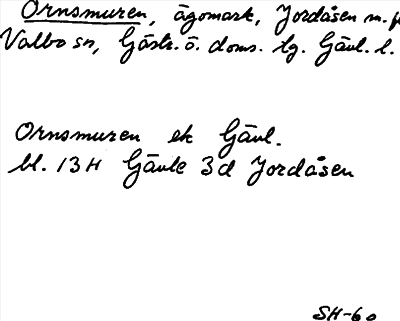 Ornsmuren, ägomark, Jordåsen m. fl
Valbo sn, Gästr. ö. doms. lg. Gävl. l.
Ornsmuren ek Gävl.
bl. 13H Gävle 3d Jordåsen
SH-60